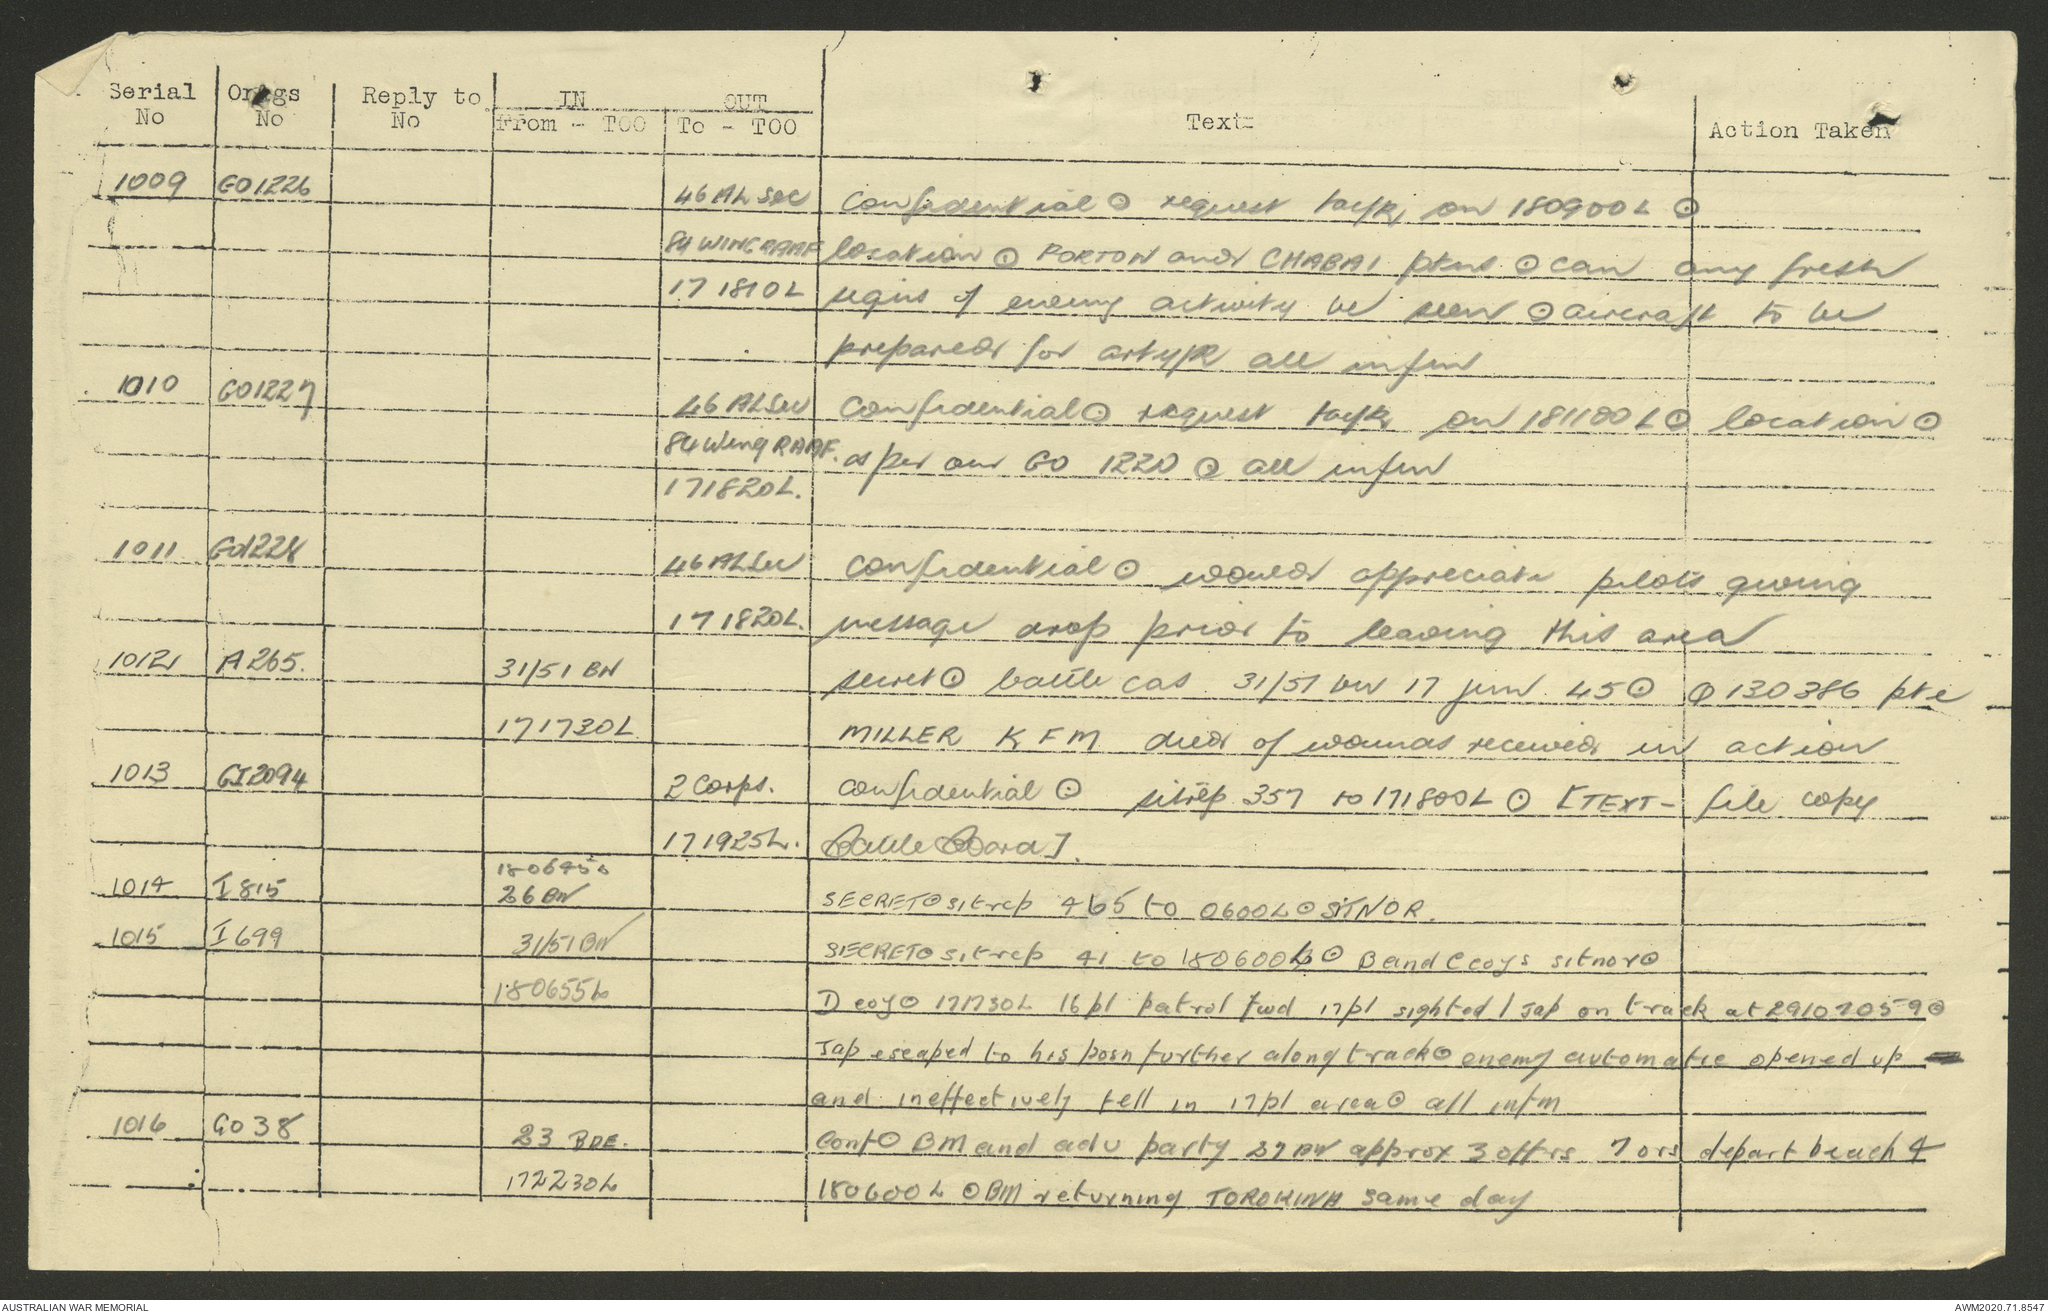 Serial No | Origs No | Reply to No | IN From - TOO | OUT To - TOO | Text | Action Taken
1009 | GO1226 | 46 AL Sec | Confidential ⊙ request tac/R on 180900L ⊙
84 WING RAAF | location ⊙ PORTON and CHABAI ptns ⊙ can any fresh
171810L | signs of enemy activity be seen ⊙ aircraft to be
prepared for arty/R all infm
1010 | GO1227 | 46 AL Sec | Confidential ⊙ request tac/R on 181100L ⊙ location ⊙
84 Wing RAAF. | as per our GO 1220 ⊙ all infm
171820L.
1011 | GO1228 | 46 AL Sec | Confidential ⊙ would appreciate pilots giving
171820L. | message drop prior to leaving this area
1012 | A265. | 31/51 BN | secret ⊙ battle cas 31/51 bn 17 jun 45 ⊙ Q130386 pte
171730L | MILLER K F M died of wounds received in action
1013 | GI2094 | 2 Corps. | Confidential ⊙ sitrep 357 to 171800L ⊙ [TEXT - file copy
171925L. | Battle Board].
180645L
1014 | I815 | 26 BN | SECRET ⊙ sitrep 465 to 0600L ⊙ SITNOR.
1015 | I699 | 31/51 BN | SECRET ⊙ sitrep 41 to 180600L ⊙ B and C coys sitnor ⊙
180655L | D coy ⊙ 171730L 16 pl patrol fwd 17 pl sighted 1 Jap on track at 29107059 ⊙
Jap escaped to his posn further along track ⊙ enemy automatic opened up
and ineffectively fell in 17 pl area ⊙ all infm
1016 | GO38 | 23 BDE. | Conf ⊙ BM and adv party 27 BN approx 3 offrs 7 ors depart beach 4
172230L | 180600L ⊙ BM returning TOROKINA same day
AUSTRALIAN WAR MEMORIAL
AWM2020.71.8547